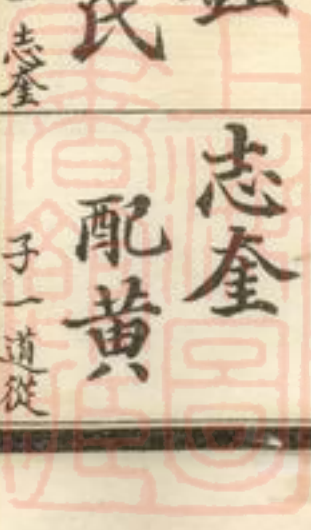 氏
志奎
志奎
配黄
子一道從